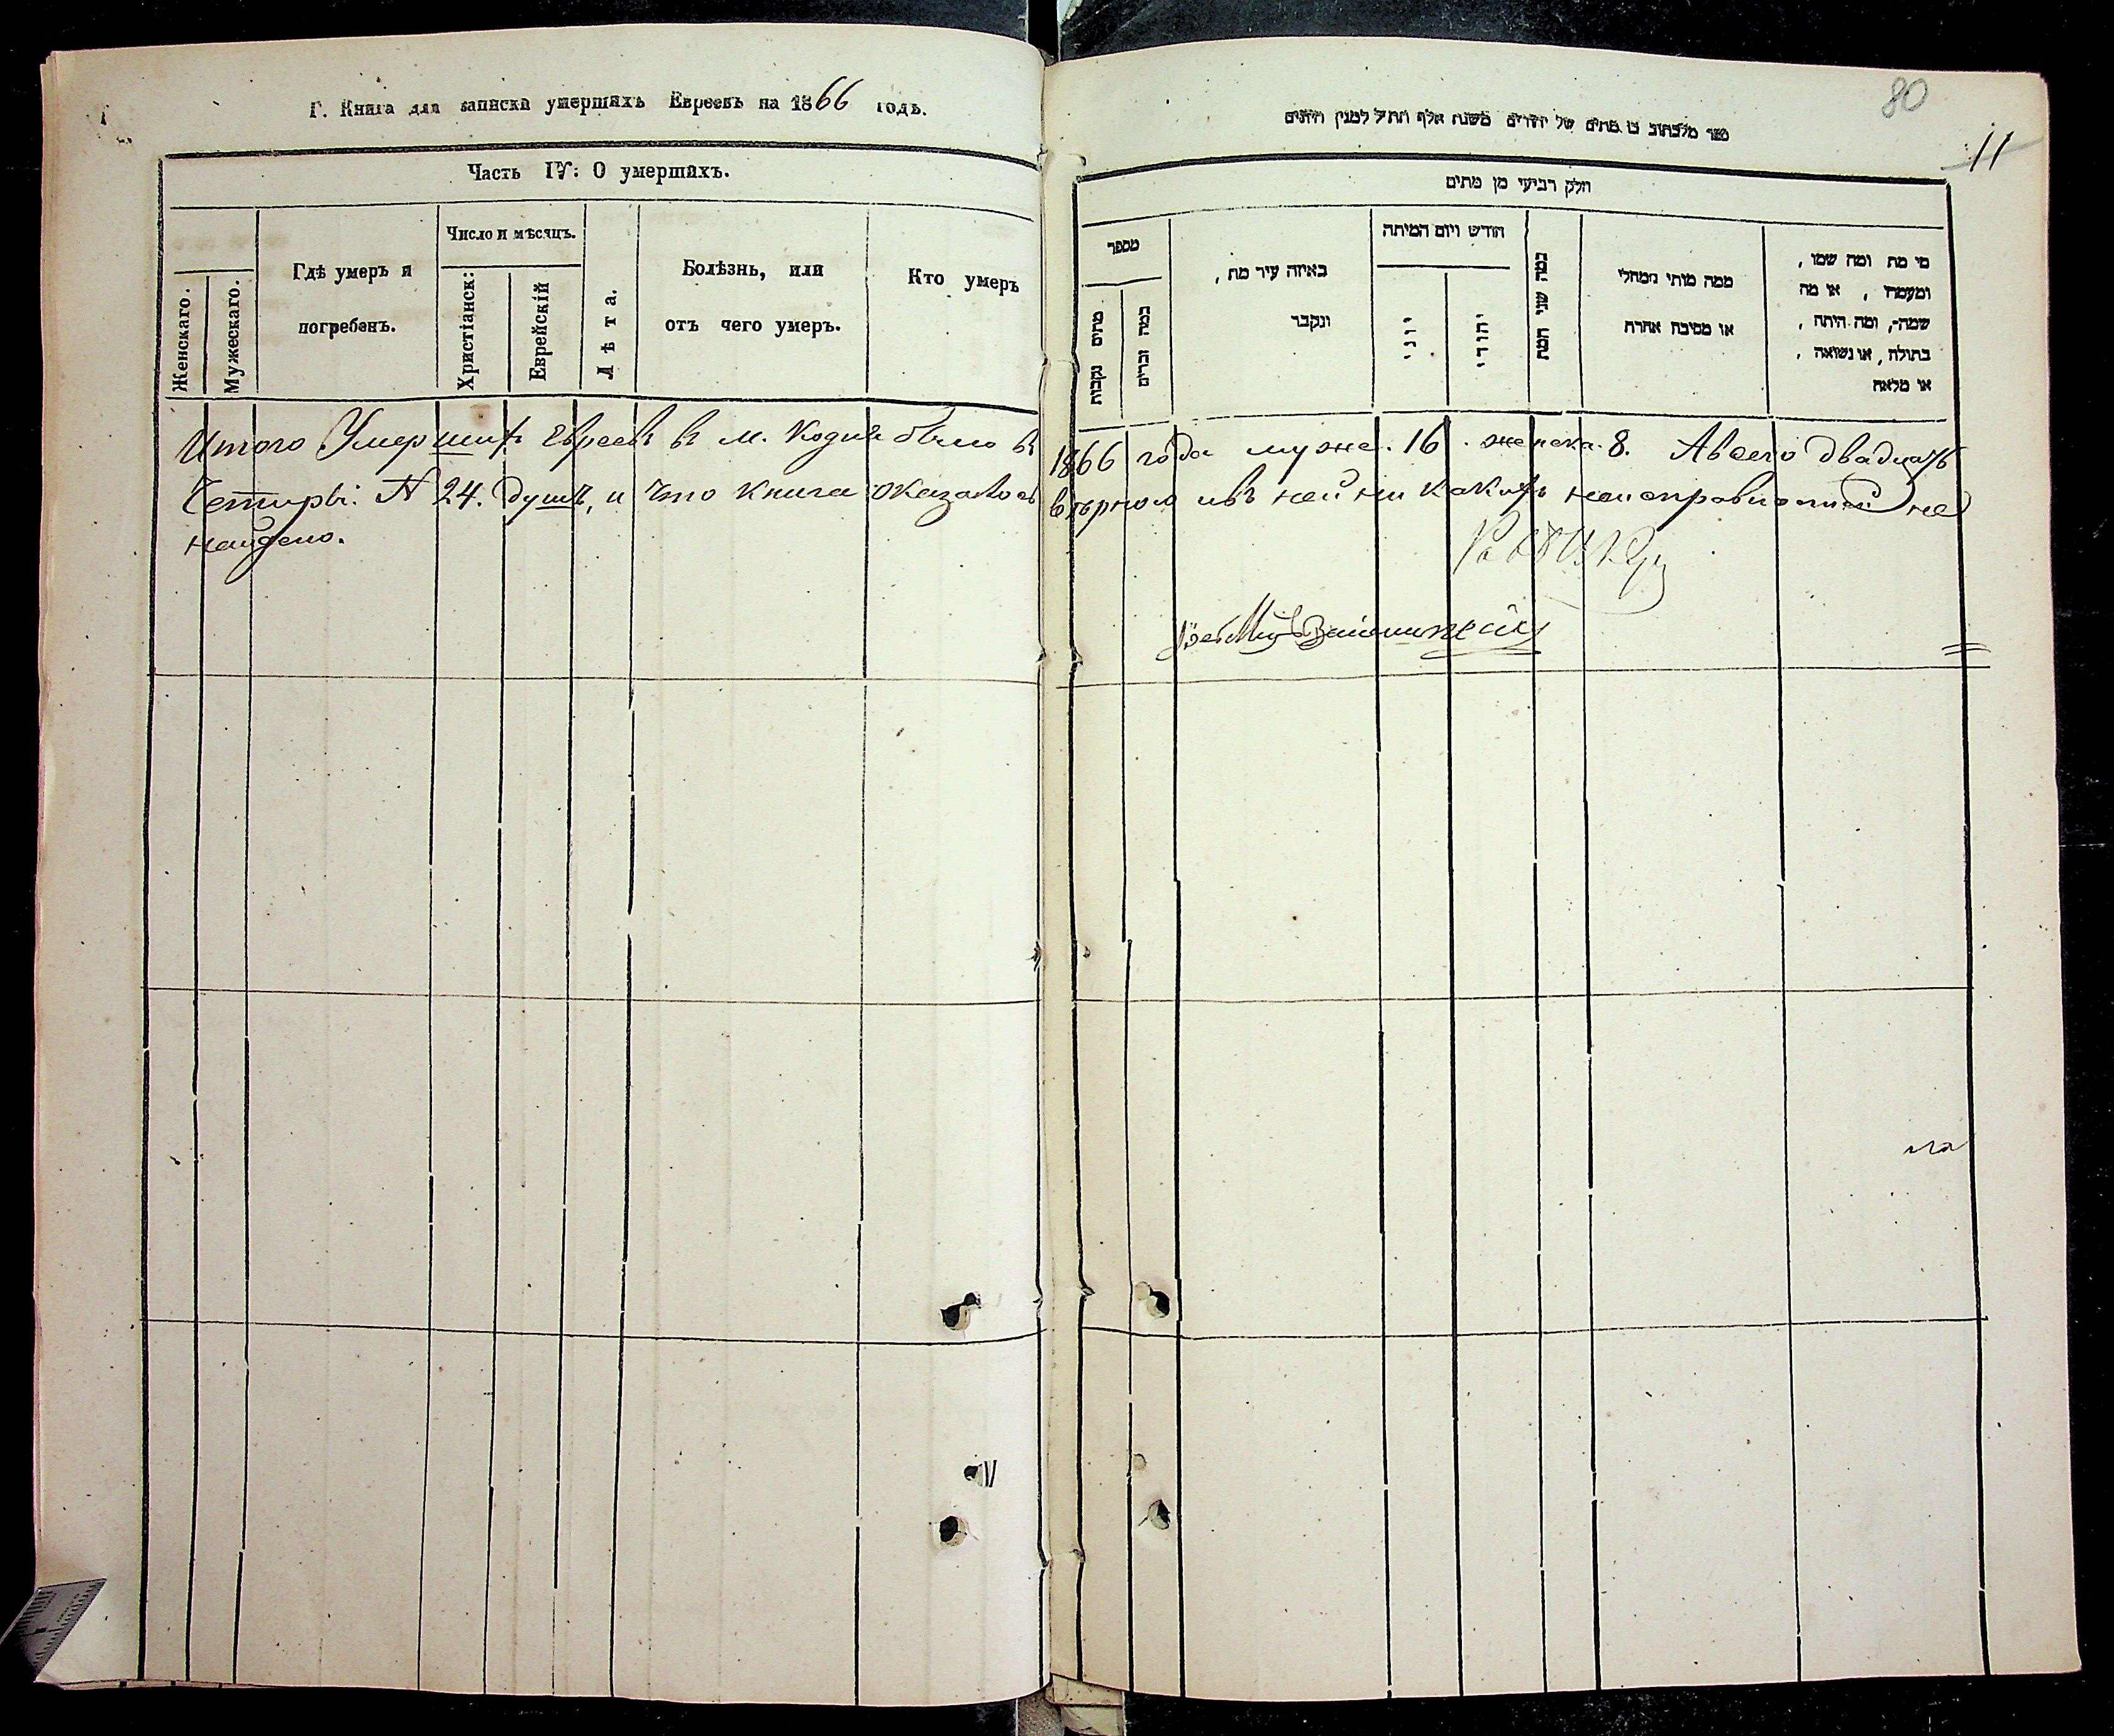 Г. Книга для записки умершихъ Евреевъ на 1866 годъ.
Часть IV: О умершихъ.
Женскаго.
Мужескаго.
Гдѣ умеръ и
погребенъ.
Число и мѣсяцъ.
Христіанск:
Еврейскій
Лѣта.
Болѣзнь, или
отъ чего умеръ.
Кто умеръ
80
11
ספר מלכתוב בו מתים של יהודים משנת אלף ותת״ל למנין היונים
חלק רביעי מן מתים
מספר
מתים נקבות
כמה זכרים
באיזה עיר מת,
ונקבר
חודש ויום המיתה
יוני
יהודי
כמה שני המת
ממה מותי ממחלי
או מסיבת אחרת
מי מת ומה שמו,
ומעמדו, או מה
שמה, ומה היתה,
בתולה, או נשואה,
או מלאה
Итого Умершихъ Евреевъ въ м. Кодни было въ 1866 года муже. 16. женска. 8. А всего двадцать
Четыри: N 24. душъ, и что книга оказалось вѣрною ивъ ней ни какихъ неисправностей не
найдено.